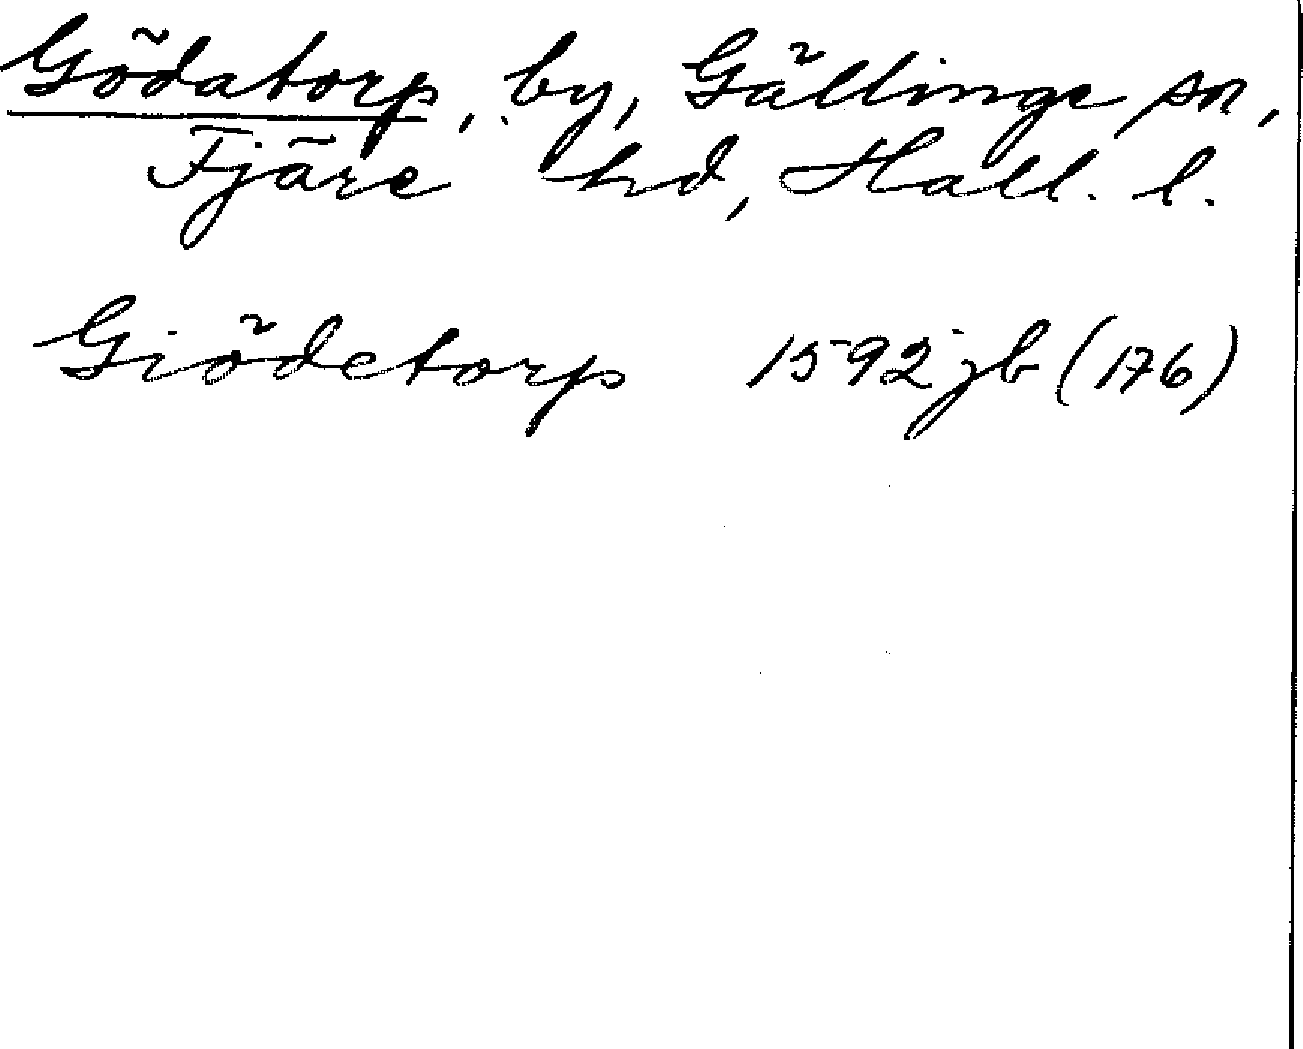 Gödatorp, by, Gällinge sn,
Fjäre hd, Hall. l.
Giödetorp 1592 jb (176)